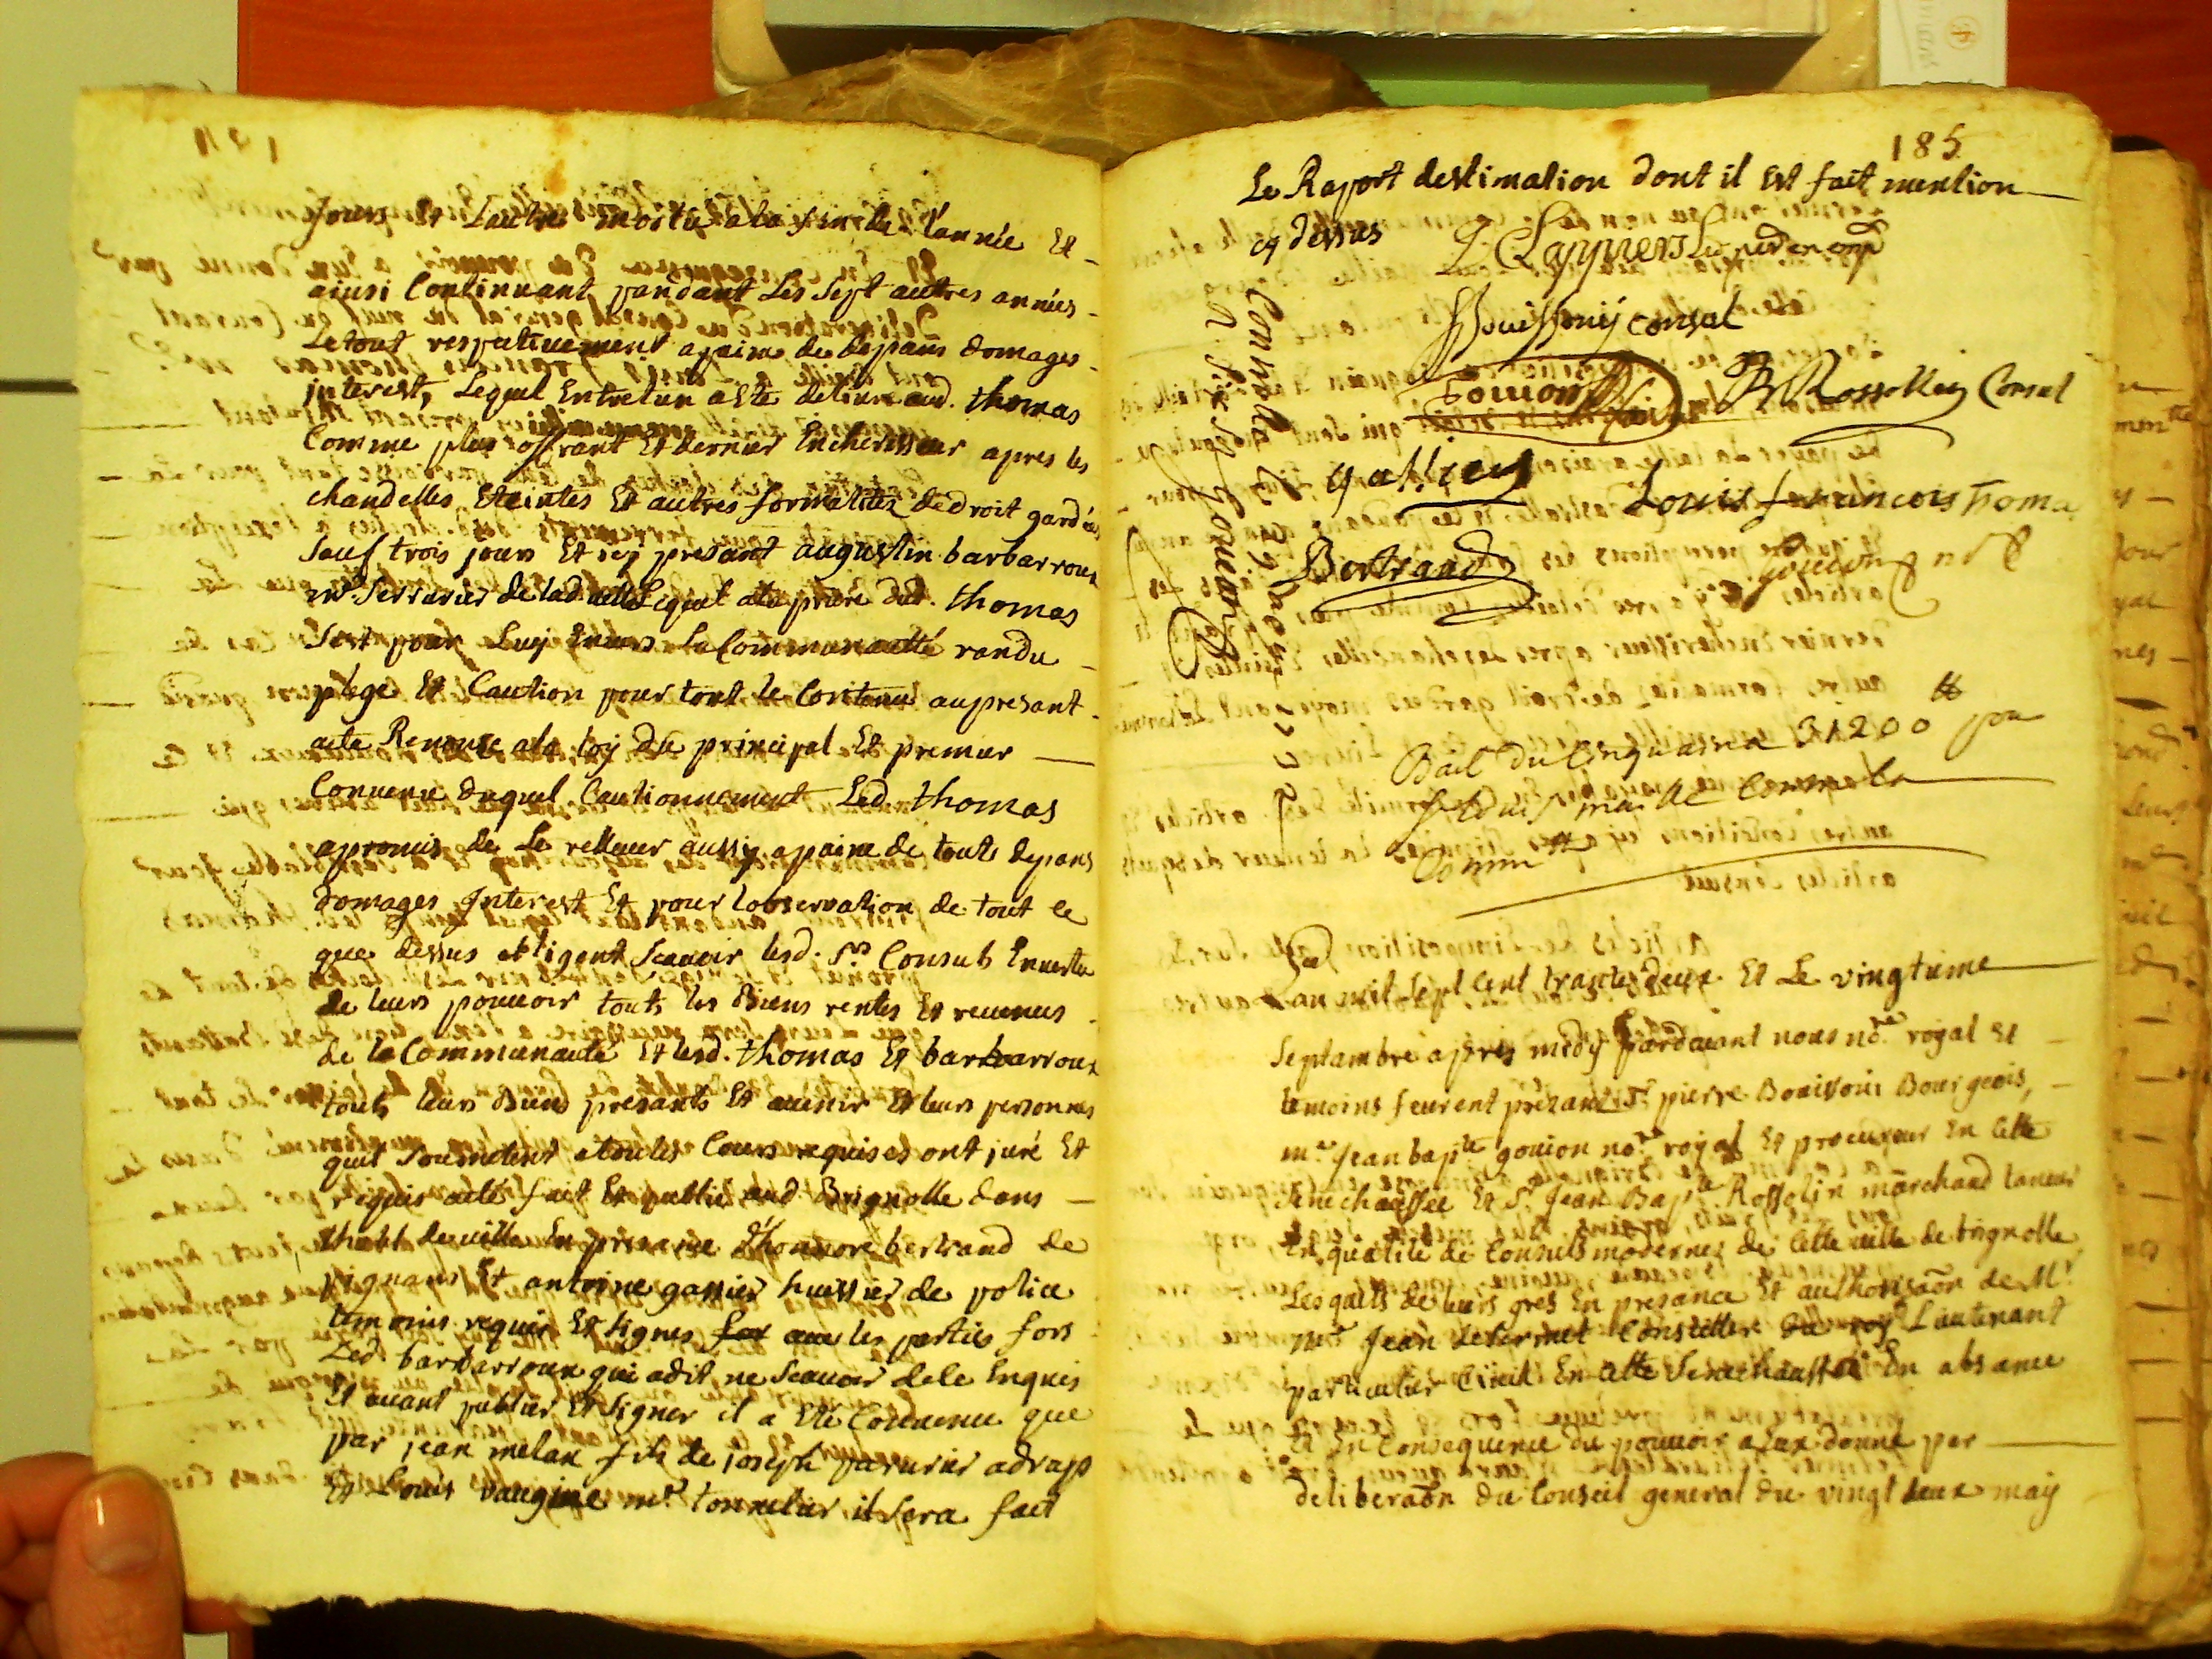 Jours Et Lautre moitié ala fin de L'année Et
ainsi Continuant pandant Les Sept autres années
Le tout respectivement apeine de depans domages
interest, Lequel Entretun a Eté delivré aud. thomas
Comme plus offrant Et dernier Encherisseur apres les
chandelles Eteintes Et autres formalités de droit gardées
Sauf trois jours Et icy presant augustin barbarroux
me. Serrurier de lad ville Lequel ala priere dud. thomas
S'est pour Luy Envers La Communautté randu
plege Et Caution pour tout le Contenu au presant
acte Renonce ala loy du principal Et premier
Convenu duquel Cautionnement Led. thomas
apromis de Le rellever aussy apaine de touts depans
domages Interest Et pour lobservation de tout ce
que dessus obligent Scavoir lesd. Srs Consuls En
de leurs pouvoir touts les Biens rentes Et revenus
de la Communauté Et lesd. thomas Et barbarroux
touts leurs Biens presants Et avenir Et leurs personnes
quil Soumetent atoutes Cours requises ont juré Et
requis acté fait Et publié aud Brignolle dans
lhotel de ville En presance d'honnoré bertrand de
pignans Et antoine gassier huissier de police
temoins requis Et signés avec les parties fors
Led. barbarroux qui adit ne Scavoir dele Enquis
Et avant publier Et Signer il a Eté Convenu que
par jean melan fils de joseph parurier adrap
Et Louis Vaugine me. tonnelier il Sera fait
185
Le Raport destimation dont il Est fait mention
cy dessus
Bouissony consul
Goujon
Rossollin Consul
gassier
Louis francois Thoma
Bertrand
Goujon nore
Controllé
Bail du Cinquain a 31200 tt pour
Comm
Lan mil Sept Cent trante deux Et Le vingtieme
Septambre apres midy pardavant nous nore royal Et
temoins feurent présant Sr. pierre Bouissoni Bourgeois,
me. Jean bapte goujon nore royal Et procureur En Cette
Senechaussée Et Sr. Jean Bapte Rossolin marchand taneur
En qualité de Consuls modernes de Cette ville de brignolle
Lesquels de leurs grés En presance Et authorisaon de Mr.
me. Jean Conseiller du roy Lieutenant
particulier Civil En Cette Senechaussée En absance
Et En Consequence du pouvoir a Eux donné par
deliberaon du Conseil general du vingt deux may